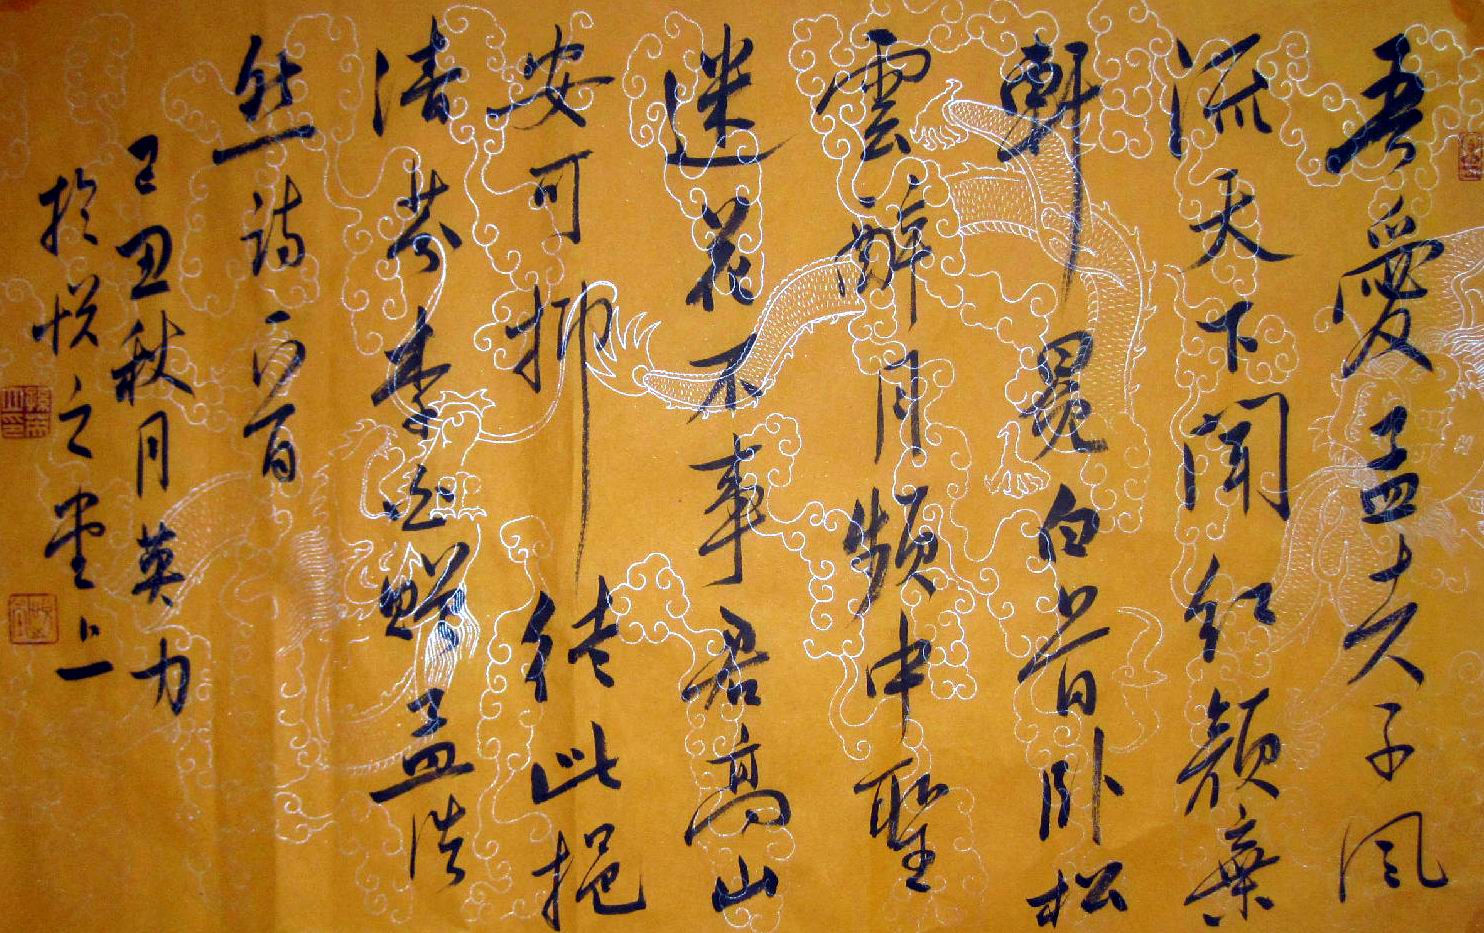 吾愛孟夫子風
流天下聞紅顏棄
軒冕白首卧松
雲醉月頻中聖
迷花不事君高山
安可抑徒此挹
清芬李白贈孟浩
然詩一首
己丑秋月英力
於悦之堂上